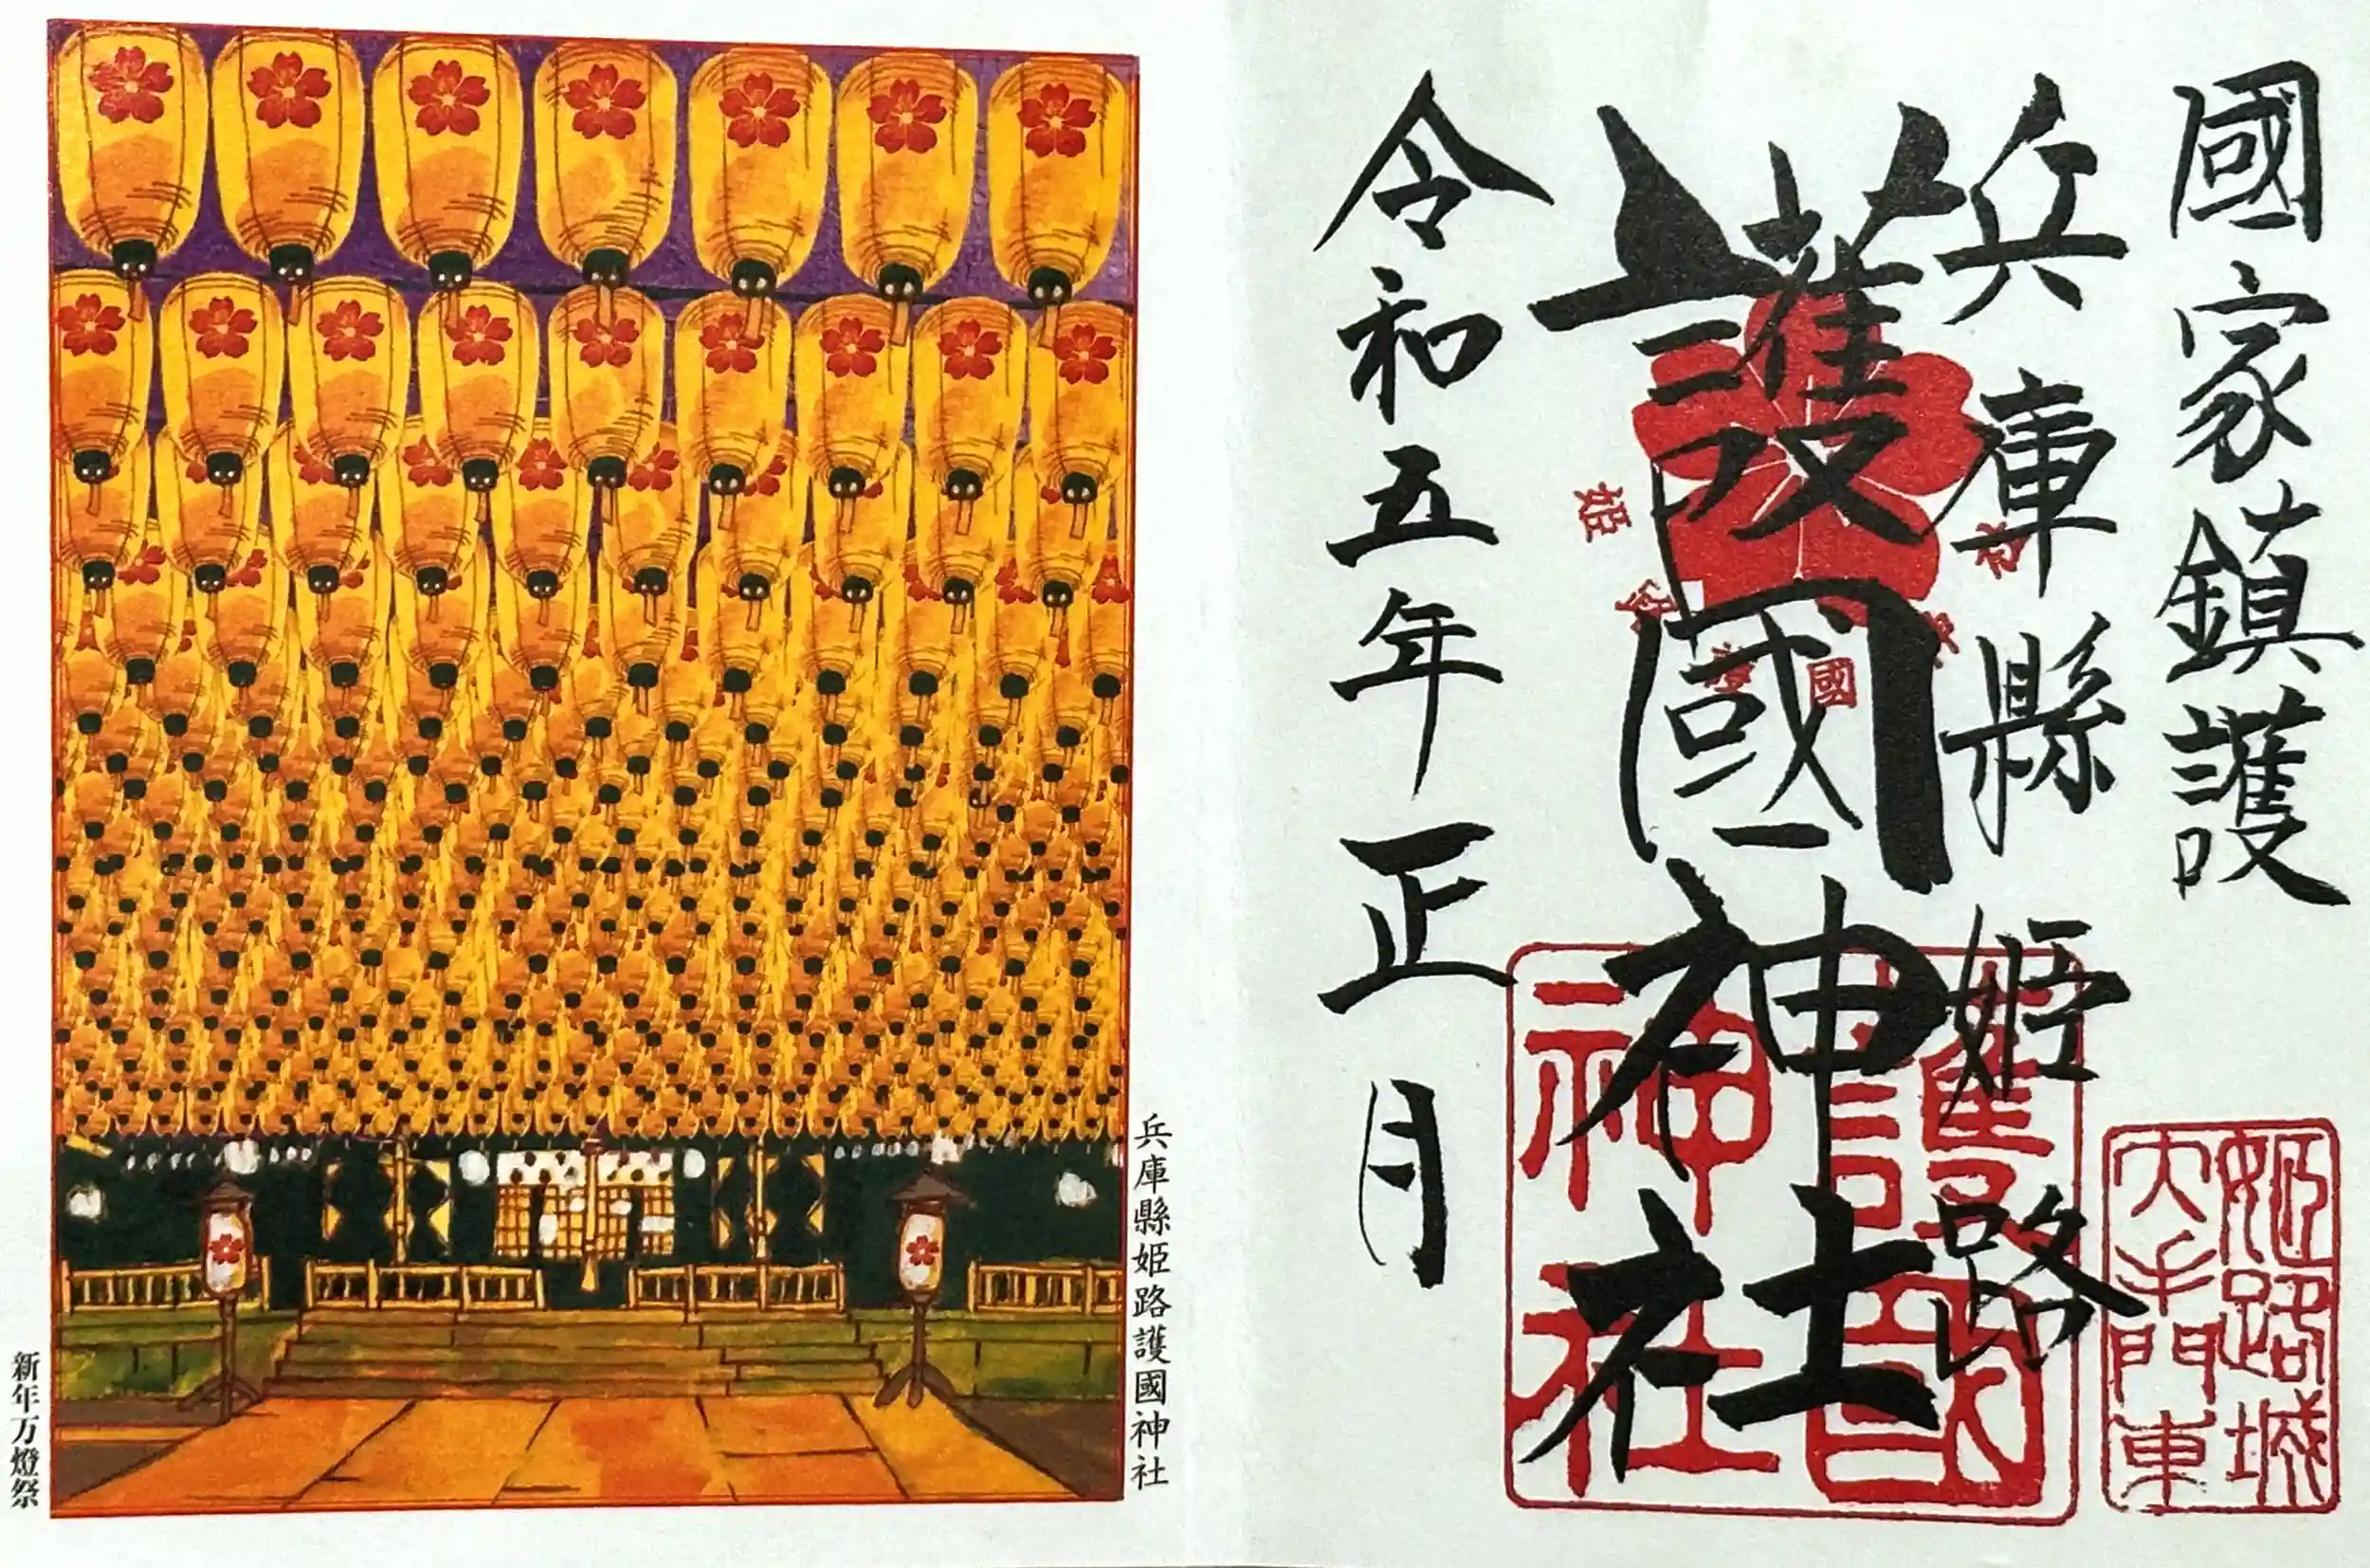 國家鎮護
兵庫縣姫路
護國神社
令和五年正月
護國
神社
姫路城
大手門東
兵庫縣姫路護國神社
新年万燈祭